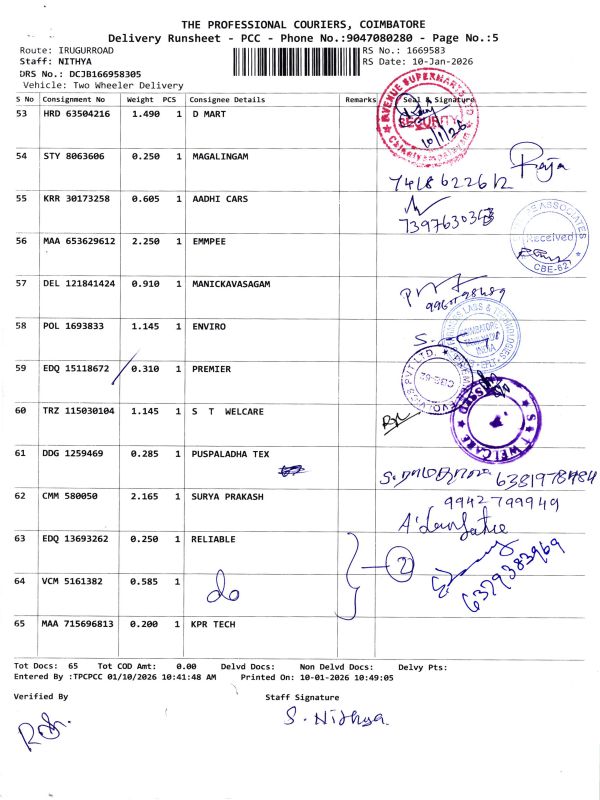 THE PROFESSIONAL COURIERS, COIMBATORE
Delivery Runsheet - PCC - Phone No.:9047080280 - Page No.:5
Route: IRUGURROAD RS No.: 1669583
Staff: NITHYA RS Date: 10-Jan-2026
DRS No.: DCJB166958305
Vehicle: Two Wheeler Delivery
S No Consignment No Weight PCS Consignee Details Remarks Seal & Signature
53 HRD 63504216 1.490 1 D MART
AVENUE SUPERMARTS
SECURITY
10/1/26
54 STY 8063606 0.250 1 MAGALINGAM
Raja
7418622612
55 KRR 30173258 0.605 1 AADHI CARS
56 MAA 653629612 2.250 1 EMMPEE
ASSOCIATES
Received
CBE-62
57 DEL 121841424 0.910 1 MANICKAVASAGAM
58 POL 1693833 1.145 1 ENVIRO
LABS & TECHNOLOGIES
COIMBATORE
INDIA
59 EDQ 15118672 0.310 1 PREMIER
PREMIER EVOLVICS PVT LTD.
CBE-62
60 TRZ 115030104 1.145 1 S T WELCARE
S T WELCARE
61 DDG 1259469 0.285 1 PUSPALADHA TEX
6381978484
62 CMM 580050 2.165 1 SURYA PRAKASH
9942799949
63 EDQ 13693262 0.250 1 RELIABLE
2
64 VCM 5161382 0.585 1 do
6379383969
65 MAA 715696813 0.200 1 KPR TECH
Tot Docs: 65 Tot COD Amt: 0.00 Delvd Docs: Non Delvd Docs: Delvy Pts:
Entered By :TPCPCC 01/10/2026 10:41:48 AM Printed On: 10-01-2026 10:49:05
Verified By Staff Signature
S. Nithya